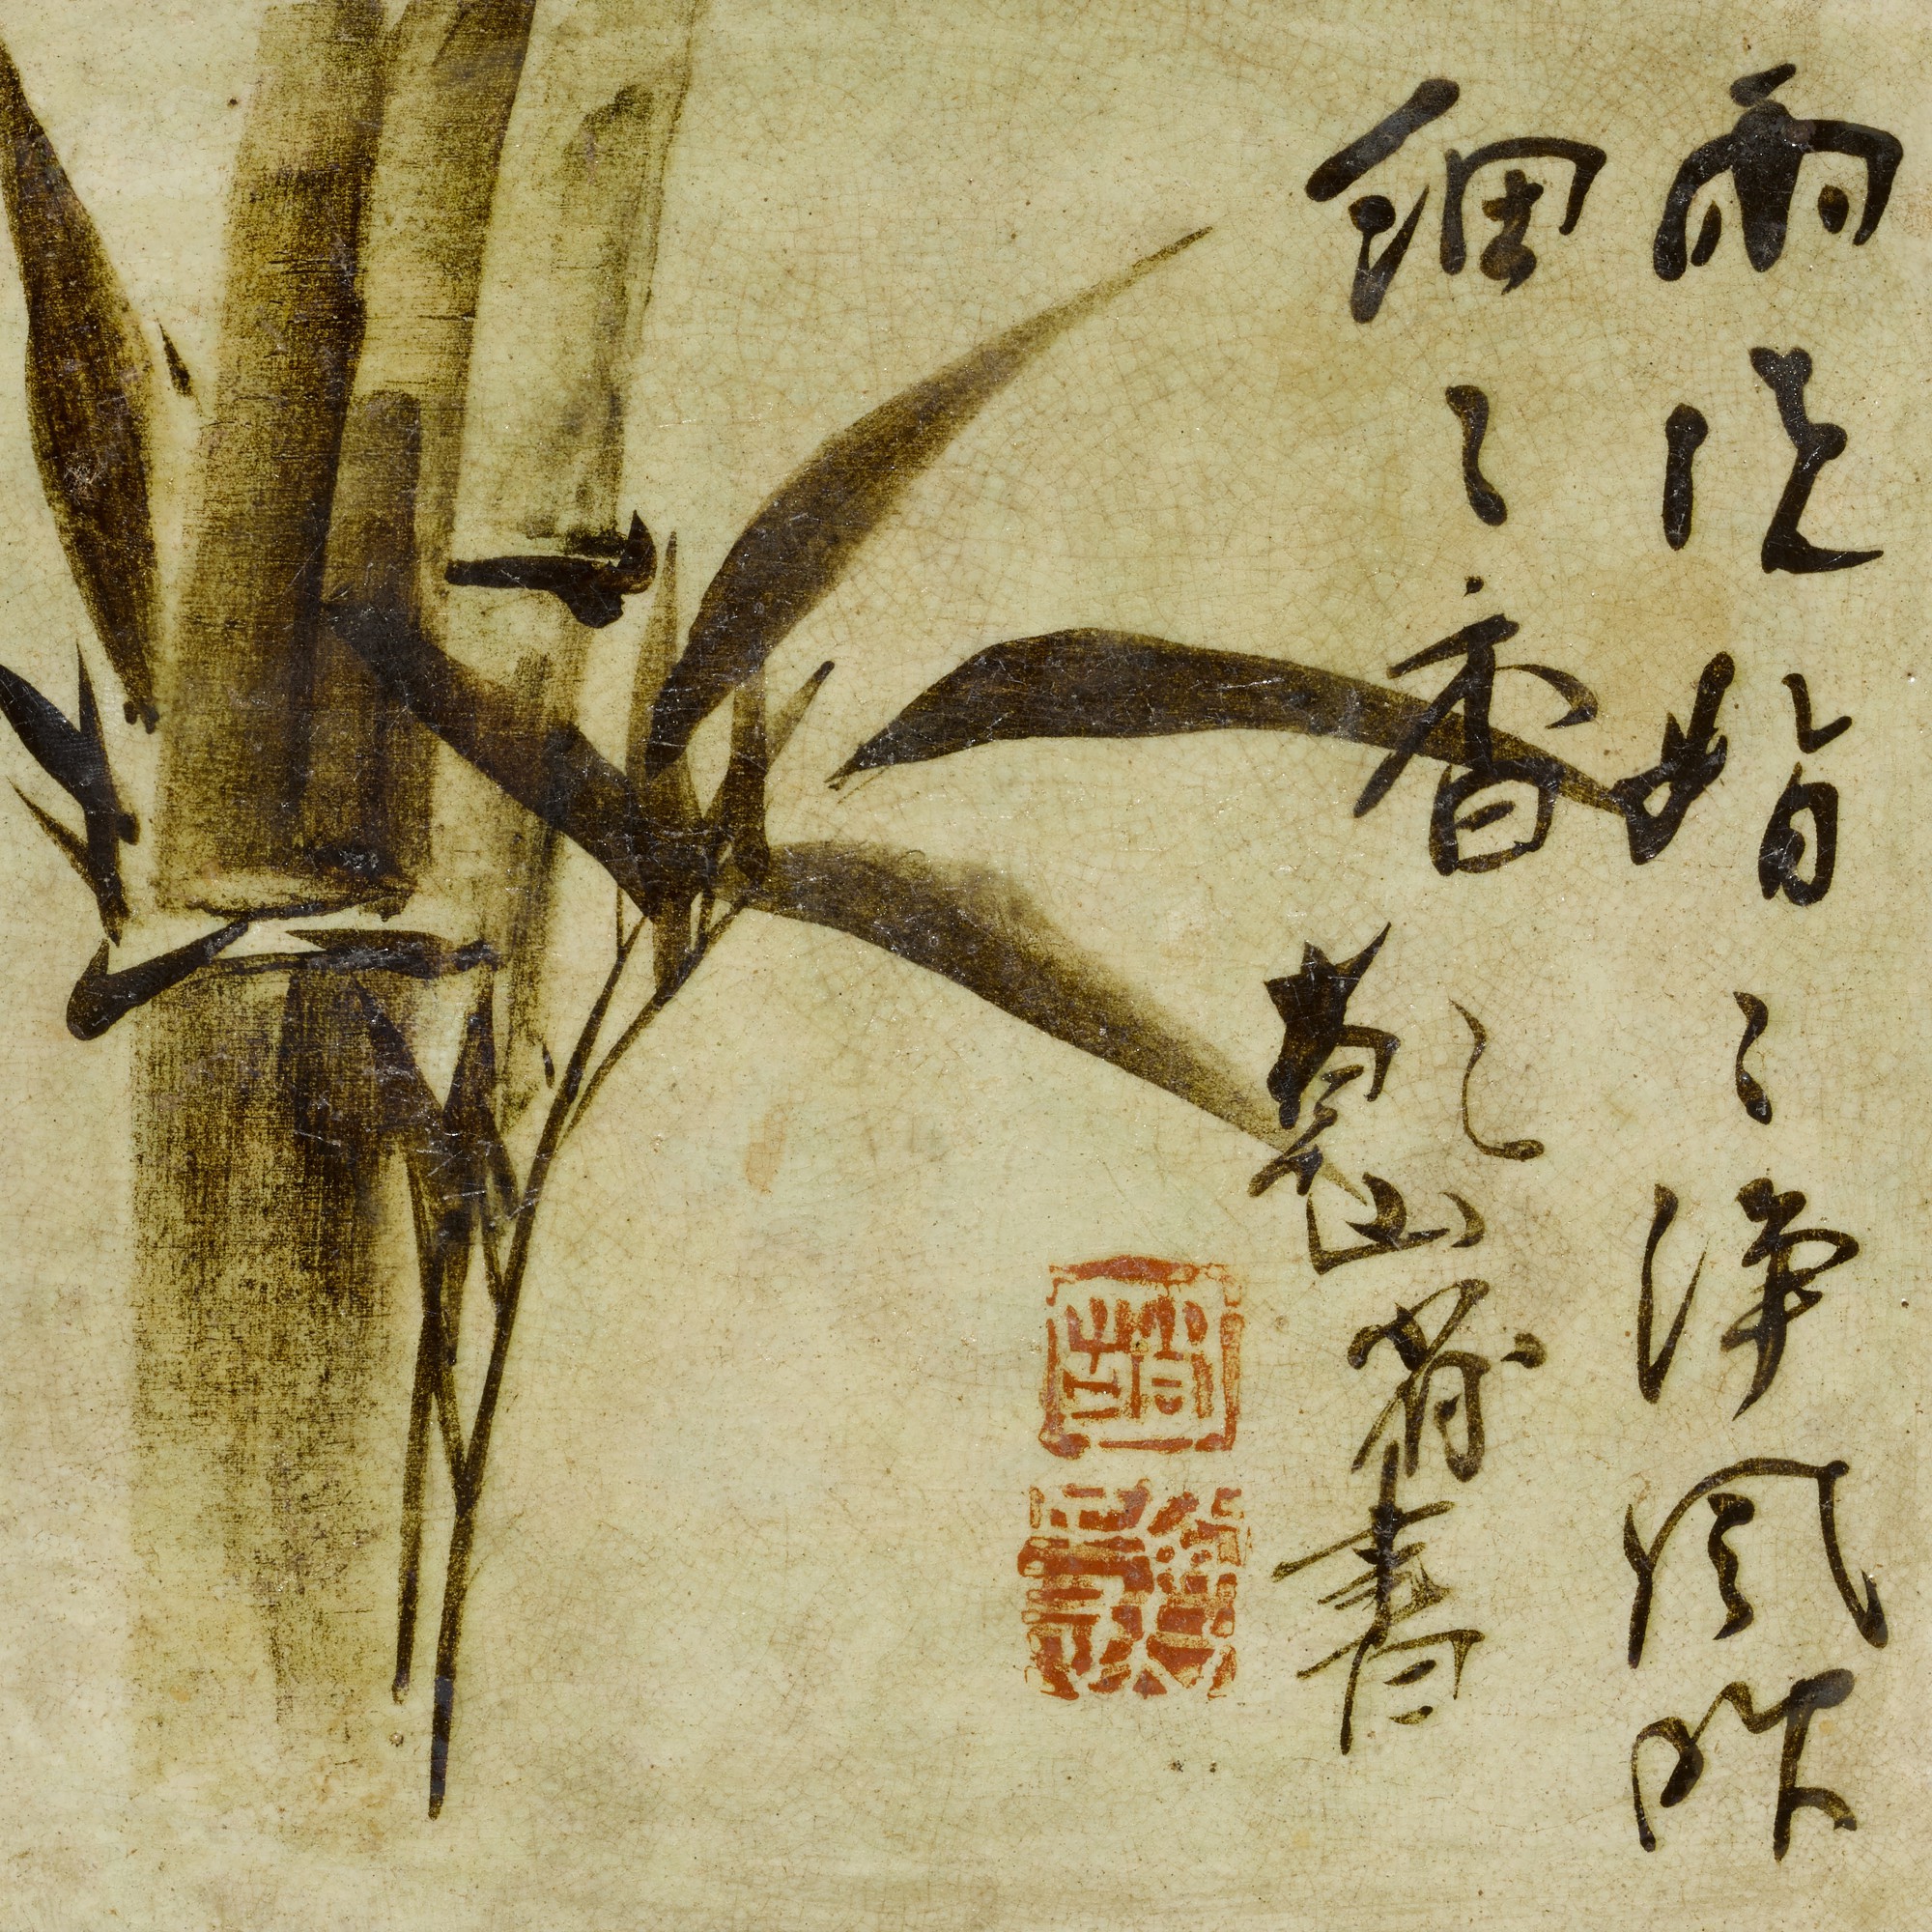 雨洗娟〻淨風吹
細〻香
乾山省書